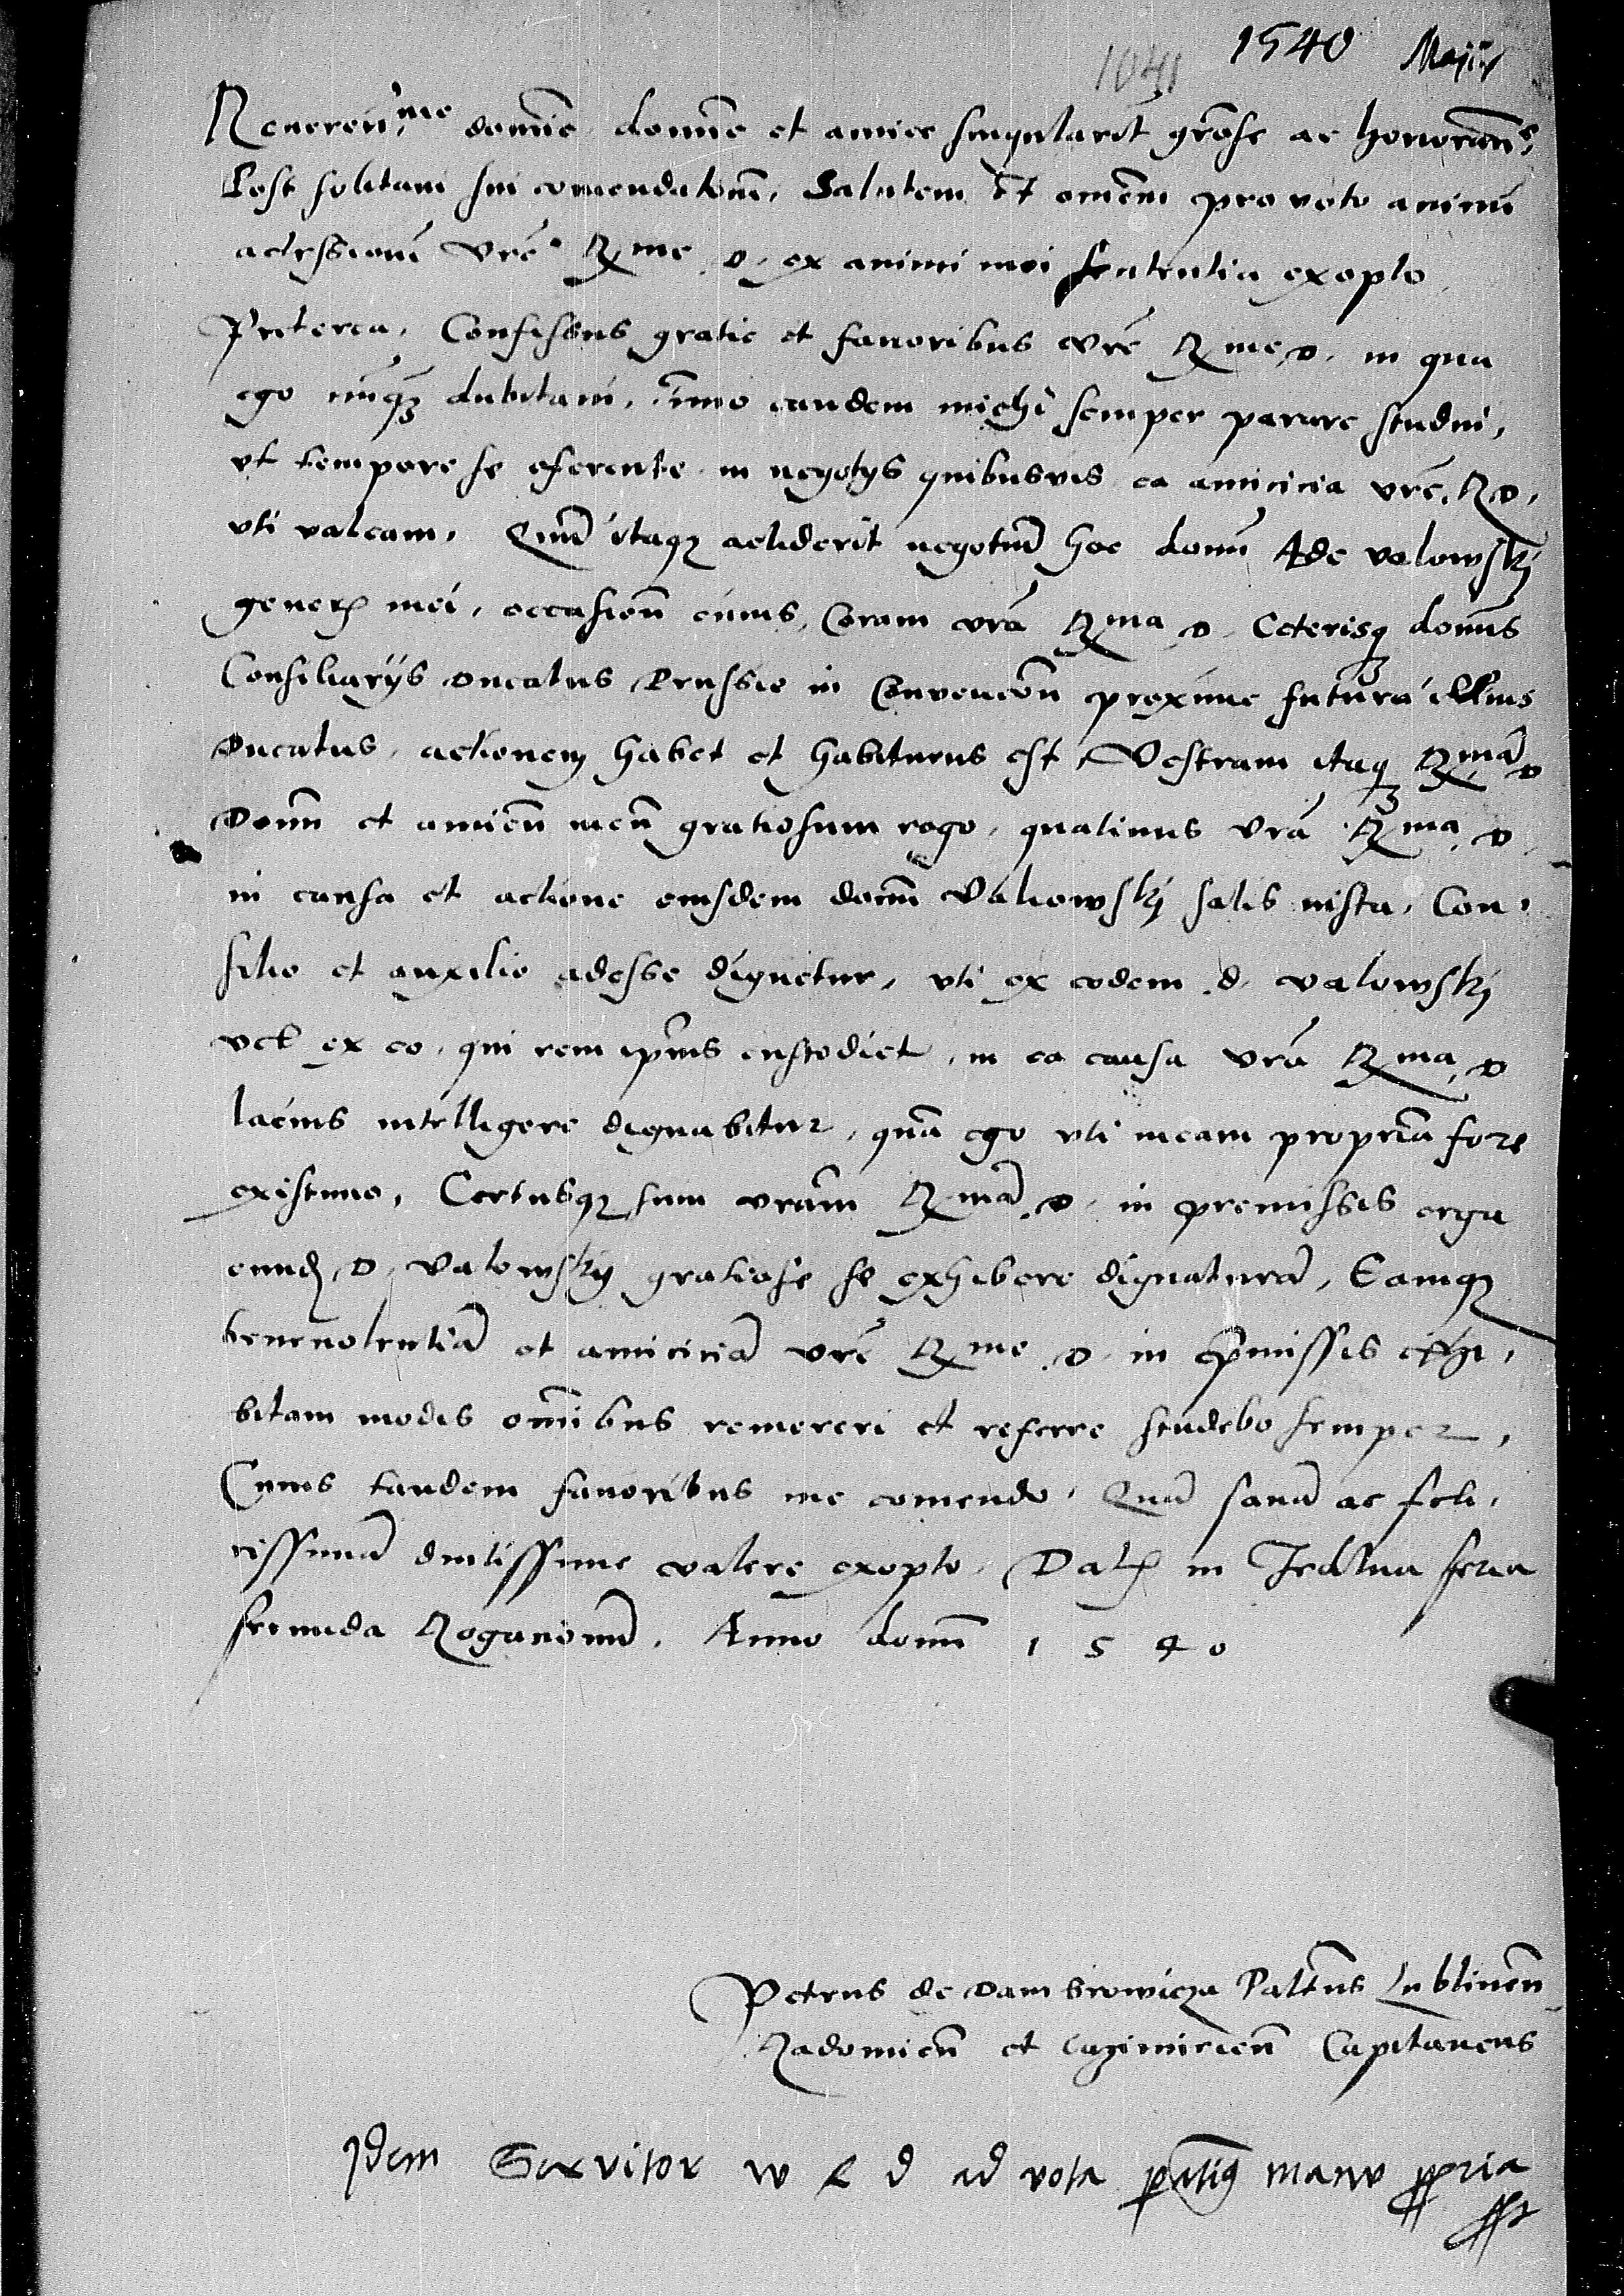 1540 Maij
1041
Reueren̄me domīe domīe et amice singularit̄ grōse ac honorān̄
Post solitam sui comendatiōnē, Salutem et omēm pro voto animi
acessionē vrē Rme D ex animi mei sententia exopto
Preterea, Confissus gratie et fauoribus vrē Rme D. in qua
ego nūq̄ꝫ dubitaui, īmo eandem michi semper parare studui,
vt tempore se oferente in negotijs quibusvis ea amicicia vrē. R D.
vti valeam, Quū itaqꝫ acciderit negotiū hoc domī Ade valowskj
generj mei, occasiōn cuius, Coram vrā Rma D. Ceterisqꝫ domīs
Consiliarijs Ducatus Prussie in Convencōn proxime futura illius
Ducatus, actionem habet et habiturus est, Vestram itaqꝫ Rmā D
Domī et amicū meū gratiosum rogo, quatinus vrā Rma D
in causa et actione eiusdem domī Valiowskj satis iusta, Con,
silio et auxilio adesse dignetur, vti ex eodem d. valowskj
vel ex eo, qui rem ip̄ius custodiet, in ea causa vrā Rma D
lacius intelligere dignabitur, quā ego vti meam propriā fore
existimo, Certusqꝫ sum vrām Rmā D. in premissis erga
eundē D. Valowskij gratiose se exhibere dignaturā, Eamqꝫ
beneuolentiā et amiciciā vrē Rme D. in p̄missis exhi,
bitam modis omībus remereri et referre studebo semper,
Cuius tandem fauoribus me comendo. Quā sanā ac feli,
cissimā diutissime valere exopto. Datj in Jedlna feria
secunda Rogacionū. Anno domī 1540
Petrus de Dambrowicza Palt̄nus Lublinēn
Radomiēn et Cazimiriēn Capitaneus
Idem Servitor W R d ad vota paratiss manu ppria
sst